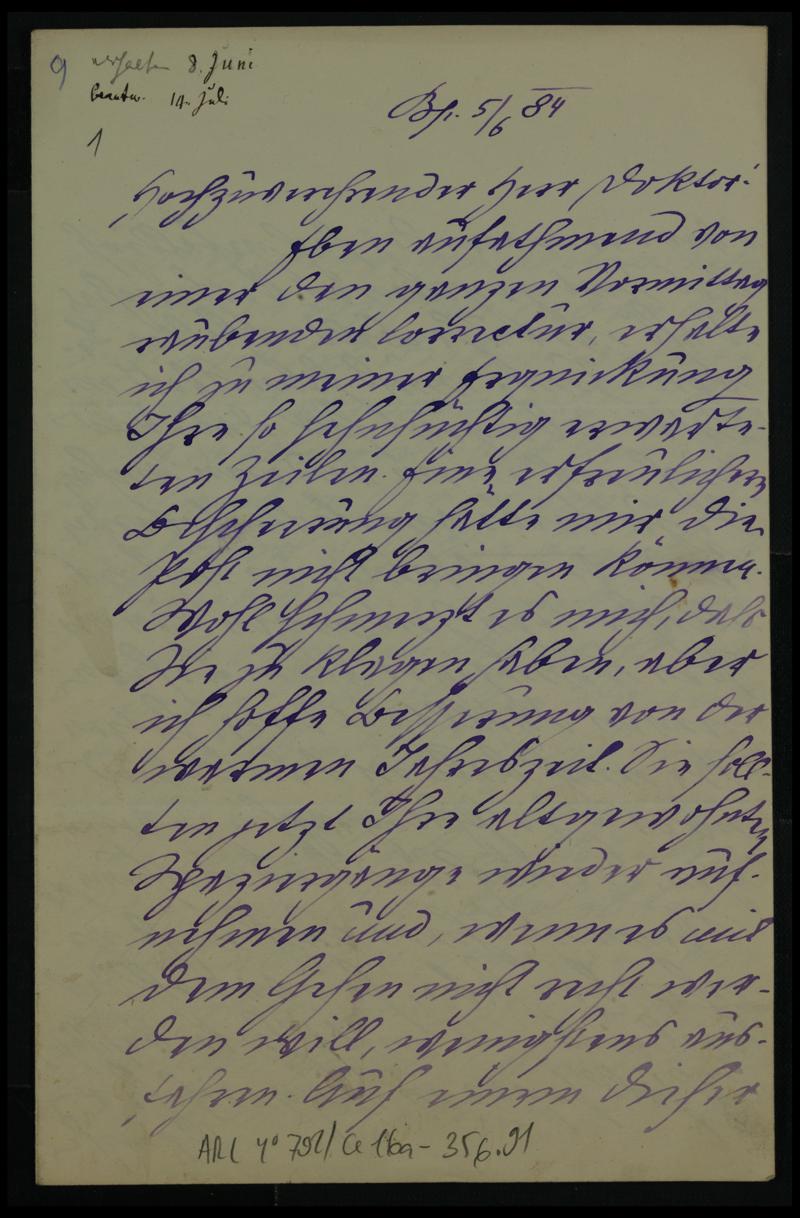 9 erhalten 8. Juni
beantw. 14. Juli
1
Bp. 5/6 84
Hochzuverehrender Herr Doktor!
Eben aufathmend von
einer den ganzen Vormittag
raubenden Correctur, erhalte
ich zu meiner Erquickung
Ihre so sehnsüchtig erwarte-
ten Zeilen. Eine erfreulichere
Bescherung hätte mir die
Post nicht bringen können.
Wohl schmerzt es mich, daß
Sie zu klagen haben, aber
ich hoffe Besserung von der
warmen Jahreszeit. Sie soll-
ten jetzt Ihre altgewohnten
Spaziergänge wieder auf-
nehmen und, wenn es mit
dem Gehen nicht recht wer-
den will, wenigstens aus-
fahren. Auf einem dieser
ARC 4° 792/